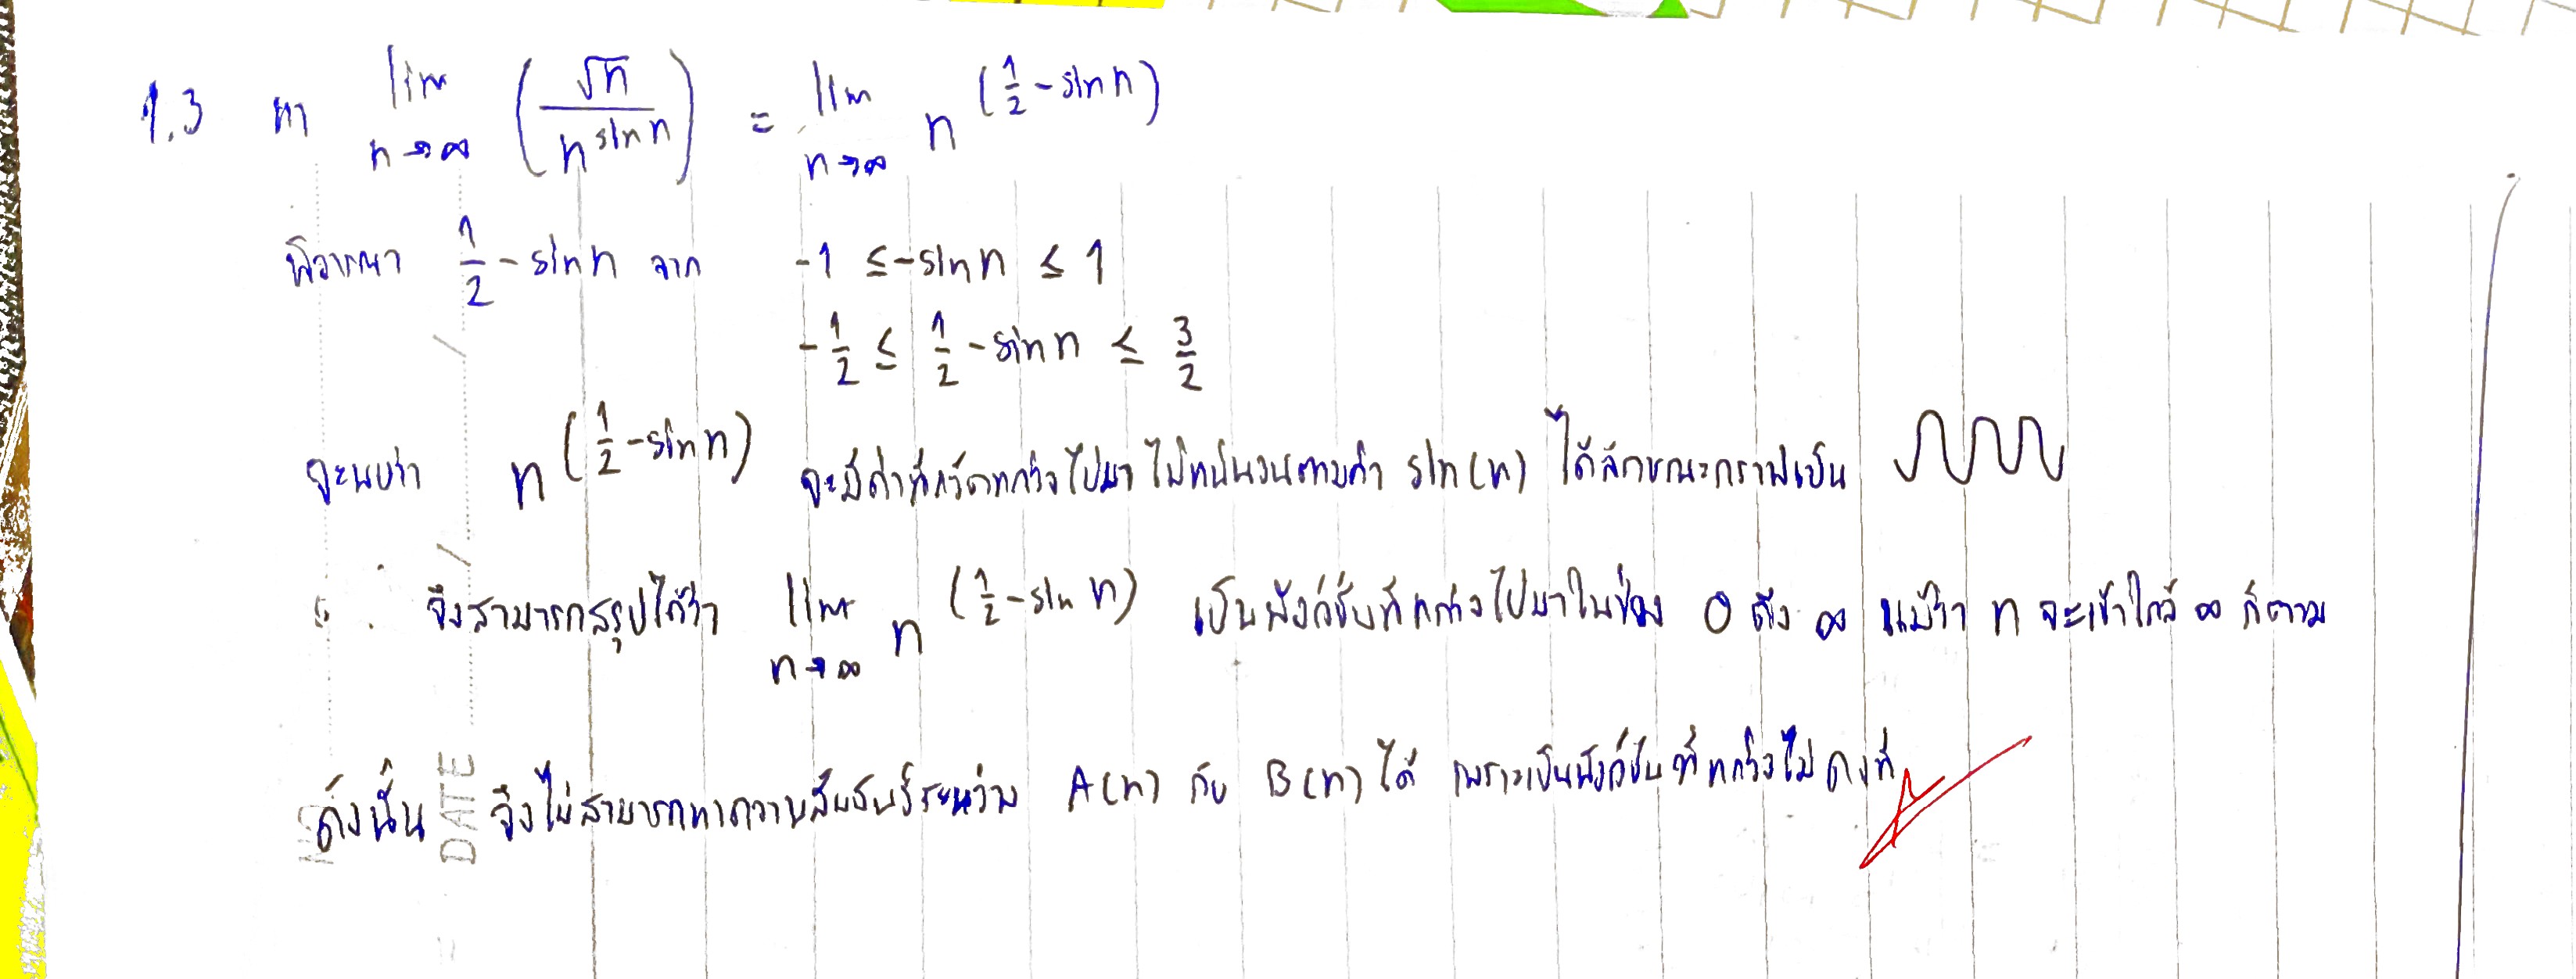 1.3 หา lim n→∞ (√n / n^(sin n)) = lim n→∞ n^(1/2 - sin n)
พิจารณา 1/2 - sin n จาก -1 ≤ -sin n ≤ 1
-1/2 ≤ 1/2 - sin n ≤ 3/2
จะพบว่า n^(1/2 - sin n) จะมีค่าที่แกว่งไปมา ไม่แน่นอนตามค่า sin(n) ได้ลักษณะกราฟเป็น
จึงสามารถสรุปได้ว่า lim n→∞ n^(1/2 - sin n) เป็นฟังก์ชันที่แกว่งไปมาในช่วง 0 ถึง ∞ แม้ว่า n จะเข้าใกล้ ∞ ก็ตาม
ดังนั้น จึงไม่สามารถหาความสัมพันธ์ระหว่าง A(n) กับ B(n) ได้ เพราะเป็นฟังก์ชันที่แกว่งไม่คงที่
DATE / /